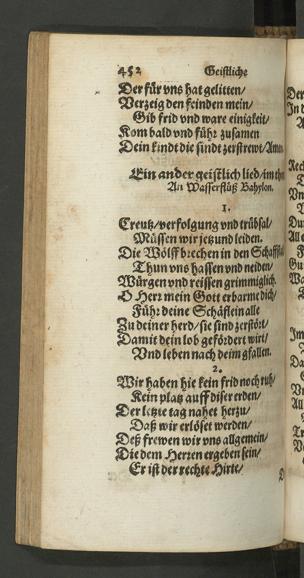 452 Geistliche
Der für vns hat gelitten/
Verzeig den feinden mein/
Gib frid vnd ware einigkeit/
Kom bald vnd führ zusamen
Dein kindt die sindt zerstrewt/ Amen
Ein ander geistlich lied/im thon
An Wasserflüß Babylon.
1.
Creutz/verfolgung vnd trübsal/
Müssen wir jetzund leiden.
Die Wölff brechen in den Schaffstal
Thun vns hassen vnd neiden/
Würgen vnd reissen grimmiglich.
O Herr mein Gott erbarme dich/
Führ deine Schäflein alle
Zu deiner herd/sie sind zerstört/
Damit dein lob gefördert wirt/
Vnd leben nach deim gfallen.
2.
Wir haben hie kein frid noch ruh/
Kein platz auff diser erden/
Der letzte tag nahet herzu/
Daß wir erlöset werden/
Deß frewen wir vns allgemein/
Die dem Herren ergeben sein/
Er ist der rechte Hirte/